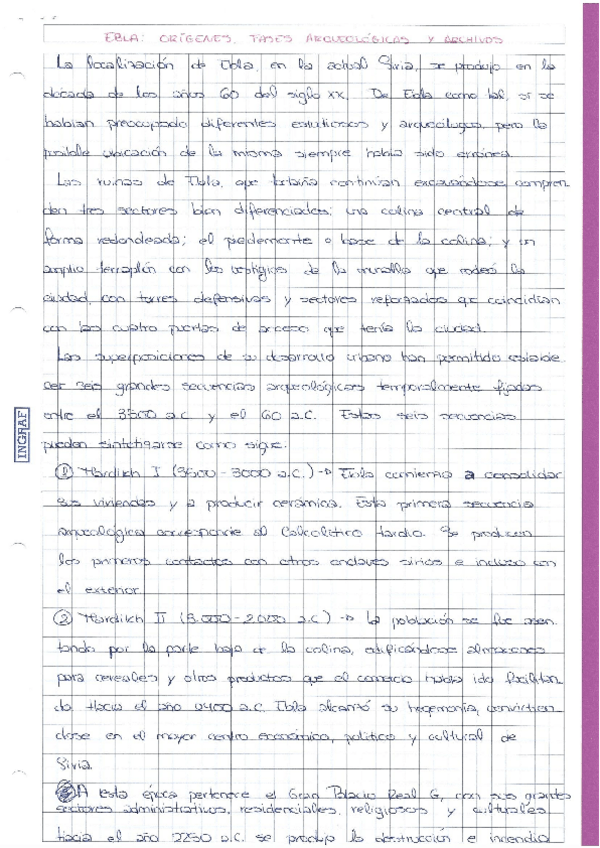 EBLA: ORÍGENES, FASES ARQUEOLÓGICAS Y ARCHIVOS
La localización de Ebla, en la actual Siria, se produjo en la
década de los años 60 del siglo XX. De Ebla como tal, sí se
habían preocupado diferentes estudiosos y arqueólogos, pero la
posible ubicación de la misma siempre había sido errónea.
Las ruinas de Ebla, que todavía continúan excavándose compren
den tres sectores bien diferenciados; una colina central de
forma redondeada; el piedemonte o base de la colina; y un
amplio terraplén con los vestigios de la muralla que rodeó la
ciudad, con torres defensivas y sectores reforzados que coincidían
con las cuatro puertas de acceso que tenía la ciudad.
Las superposiciones de su desarrollo urbano han permitido estable
cer seis grandes secuencias arqueológicas temporalmente fijadas
entre el 3500 a.C. y el 60 a.C. Estas seis secuencias
pueden sintetizarse como sigue:
① Mardikh I (3500-3000 a.C.) → Ebla comienza a consolidar
sus viviendas y a producir cerámica. Esta primera secuencia
arqueológica corresponde al Calcolítico tardío. Se producen
los primeros contactos con otros enclaves sirios e incluso con
el exterior.
② Mardikh II (3.000-2000 a.C) → La población se fue asen
tando por la parte baja de la colina, edificándose almacenes
para cereales y otros productos que el comercio había ido facilitan
do. Hacia el año 2400 a.C. Ebla alcanzó su hegemonía, convirtién
dose en el mayor centro económico, político y cultural de
Siria.
A esta época pertenece el Gran Palacio Real G, con sus grandes
sectores administrativos, residenciales, religiosos y culturales.
Hacia el año 2250 a.C. se produjo la destrucción e incendio
INGRAF